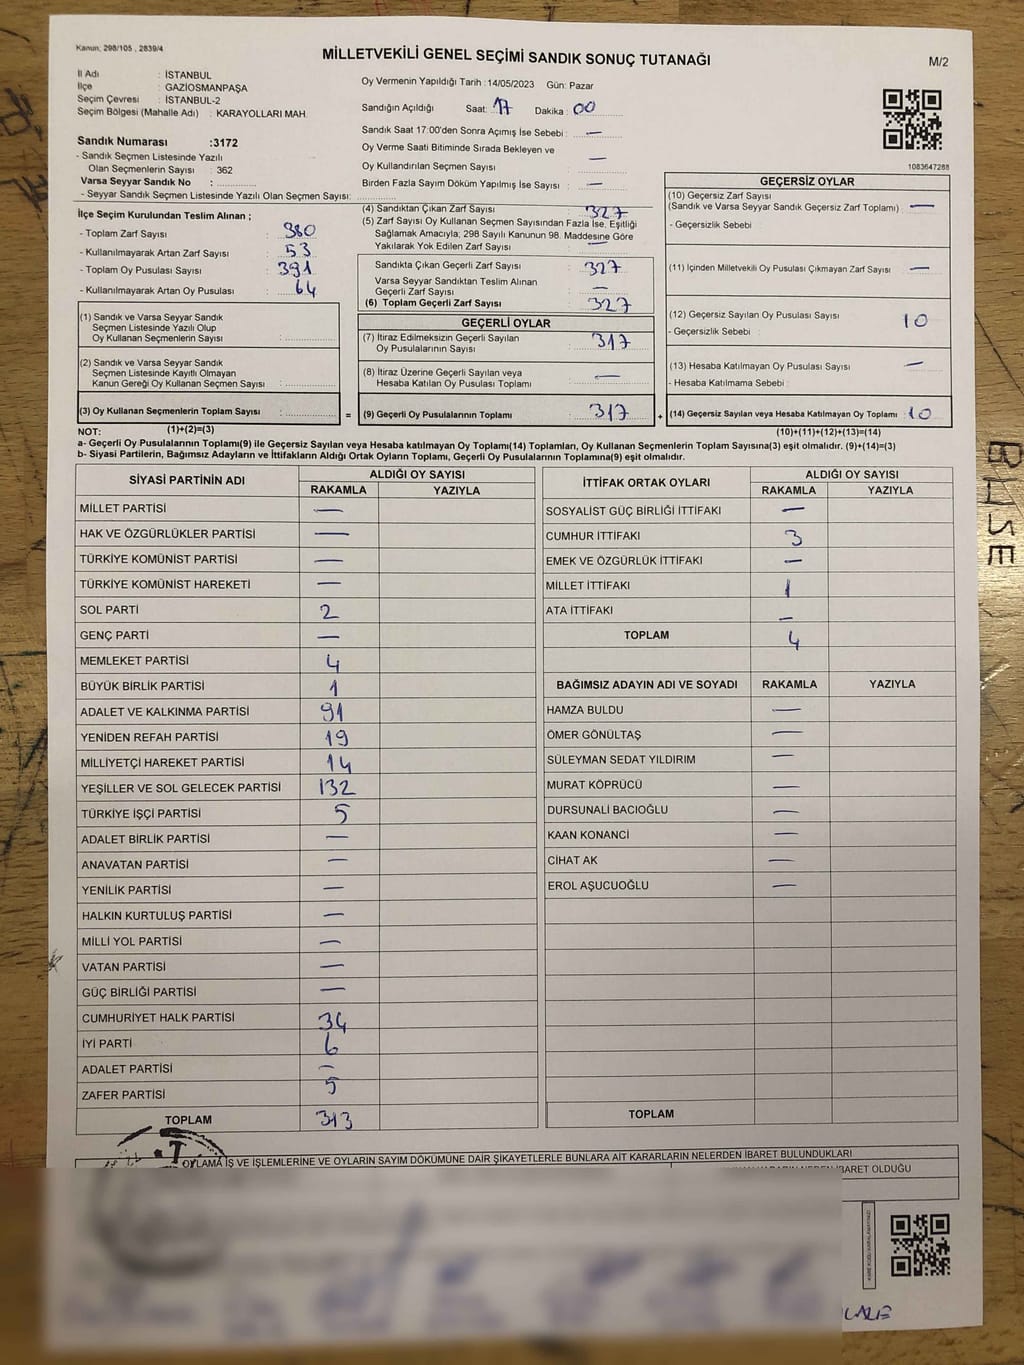 Kanun; 298/105 , 2839/4
MİLLETVEKİLİ GENEL SEÇİMİ SANDIK SONUÇ TUTANAĞI
M/2
İl Adı : İSTANBUL
İlçe : GAZİOSMANPAŞA
Seçim Çevresi : İSTANBUL-2
Seçim Bölgesi (Mahalle Adı) : KARAYOLLARI MAH.
Sandık Numarası :3172
- Sandık Seçmen Listesinde Yazılı
Olan Seçmenlerin Sayısı : 362
Varsa Seyyar Sandık No :
- Seyyar Sandık Seçmen Listesinde Yazılı Olan Seçmen Sayısı:
İlçe Seçim Kurulundan Teslim Alınan ;
- Toplam Zarf Sayısı : 380
- Kullanılmayarak Artan Zarf Sayısı : 53
- Toplam Oy Pusulası Sayısı : 391
- Kullanılmayarak Artan Oy Pusulası : 64
(1) Sandık ve Varsa Seyyar Sandık
Seçmen Listesinde Yazılı Olup
Oy Kullanan Seçmenlerin Sayısı :
(2) Sandık ve Varsa Seyyar Sandık
Seçmen Listesinde Kayıtlı Olmayan
Kanun Gereği Oy Kullanan Seçmen Sayısı :
(3) Oy Kullanan Seçmenlerin Toplam Sayısı :
Oy Vermenin Yapıldığı Tarih :14/05/2023 Gün: Pazar
Sandığın Açıldığı Saat: 17 Dakika : 00
Sandık Saat 17:00'den Sonra Açımış İse Sebebi : —
Oy Verme Saati Bitiminde Sırada Bekleyen ve
Oy Kullandırılan Seçmen Sayısı : —
Birden Fazla Sayım Döküm Yapılmış İse Sayısı : —
(4) Sandıktan Çıkan Zarf Sayısı : 327
(5) Zarf Sayısı Oy Kullanan Seçmen Sayısından Fazla İse, Eşitliği
Sağlamak Amacıyla; 298 Sayılı Kanunun 98. Maddesine Göre
Yakılarak Yok Edilen Zarf Sayısı : —
Sandıkta Çıkan Geçerli Zarf Sayısı : 327
Varsa Seyyar Sandıktan Teslim Alınan
Geçerli Zarf Sayısı : —
(6) Toplam Geçerli Zarf Sayısı : 327
GEÇERLİ OYLAR
(7) İtiraz Edilmeksizin Geçerli Sayılan
Oy Pusulalarının Sayısı : 317
(8) İtiraz Üzerine Geçerli Sayılan veya
Hesaba Katılan Oy Pusulası Toplamı : —
= (9) Geçerli Oy Pusulalarının Toplamı : 317
1083647288
GEÇERSİZ OYLAR
(10) Geçersiz Zarf Sayısı
(Sandık ve Varsa Seyyar Sandık Geçersiz Zarf Toplamı) : —
- Geçersizlik Sebebi :
(11) İçinden Milletvekili Oy Pusulası Çıkmayan Zarf Sayısı : —
(12) Geçersiz Sayılan Oy Pusulası Sayısı : 10
- Geçersizlik Sebebi :
(13) Hesaba Katılmayan Oy Pusulası Sayısı : —
- Hesaba Katılmama Sebebi :
+ (14) Geçersiz Sayılan veya Hesaba Katılmayan Oy Toplamı : 10
NOT: (1)+(2)=(3)
(10)+(11)+(12)+(13)=(14)
a- Geçerli Oy Pusulalarının Toplamı(9) ile Geçersiz Sayılan veya Hesaba katılmayan Oy Toplamı(14) Toplamları, Oy Kullanan Seçmenlerin Toplam Sayısına(3) eşit olmalıdır. (9)+(14)=(3)
b- Siyasi Partilerin, Bağımsız Adayların ve İttifakların Aldığı Ortak Oyların Toplamı, Geçerli Oy Pusulalarının Toplamına(9) eşit olmalıdır.
SİYASİ PARTİNİN ADI
ALDIĞI OY SAYISI
RAKAMLA YAZIYLA
MİLLET PARTİSİ —
HAK VE ÖZGÜRLÜKLER PARTİSİ —
TÜRKİYE KOMÜNİST PARTİSİ —
TÜRKİYE KOMÜNİST HAREKETİ —
SOL PARTİ 2
GENÇ PARTİ —
MEMLEKET PARTİSİ 4
BÜYÜK BİRLİK PARTİSİ 1
ADALET VE KALKINMA PARTİSİ 91
YENİDEN REFAH PARTİSİ 19
MİLLİYETÇİ HAREKET PARTİSİ 14
YEŞİLLER VE SOL GELECEK PARTİSİ 132
TÜRKİYE İŞÇİ PARTİSİ 5
ADALET BİRLİK PARTİSİ —
ANAVATAN PARTİSİ —
YENİLİK PARTİSİ —
HALKIN KURTULUŞ PARTİSİ —
MİLLİ YOL PARTİSİ —
VATAN PARTİSİ —
GÜÇ BİRLİĞİ PARTİSİ —
CUMHURİYET HALK PARTİSİ 34
İYİ PARTİ 6
ADALET PARTİSİ —
ZAFER PARTİSİ 5
TOPLAM 313
İTTİFAK ORTAK OYLARI
ALDIĞI OY SAYISI
RAKAMLA YAZIYLA
SOSYALİST GÜÇ BİRLİĞİ İTTİFAKI —
CUMHUR İTTİFAKI 3
EMEK VE ÖZGÜRLÜK İTTİFAKI —
MİLLET İTTİFAKI 1
ATA İTTİFAKI —
TOPLAM 4
BAĞIMSIZ ADAYIN ADI VE SOYADI RAKAMLA YAZIYLA
HAMZA BULDU —
ÖMER GÖNÜLTAŞ —
SÜLEYMAN SEDAT YILDIRIM —
MURAT KÖPRÜCÜ —
DURSUNALİ BACIOĞLU —
KAAN KONANCİ —
CİHAT AK —
EROL AŞUCUOĞLU —
TOPLAM
OYLAMA İŞ VE İŞLEMLERİNE VE OYLARIN SAYIM DÖKÜMÜNE DAİR ŞİKAYETLERLE BUNLARA AİT KARARLARIN NELERDEN İBARET BULUNDUKLARI
NEDEN İBARET OLDUĞU
BUSE